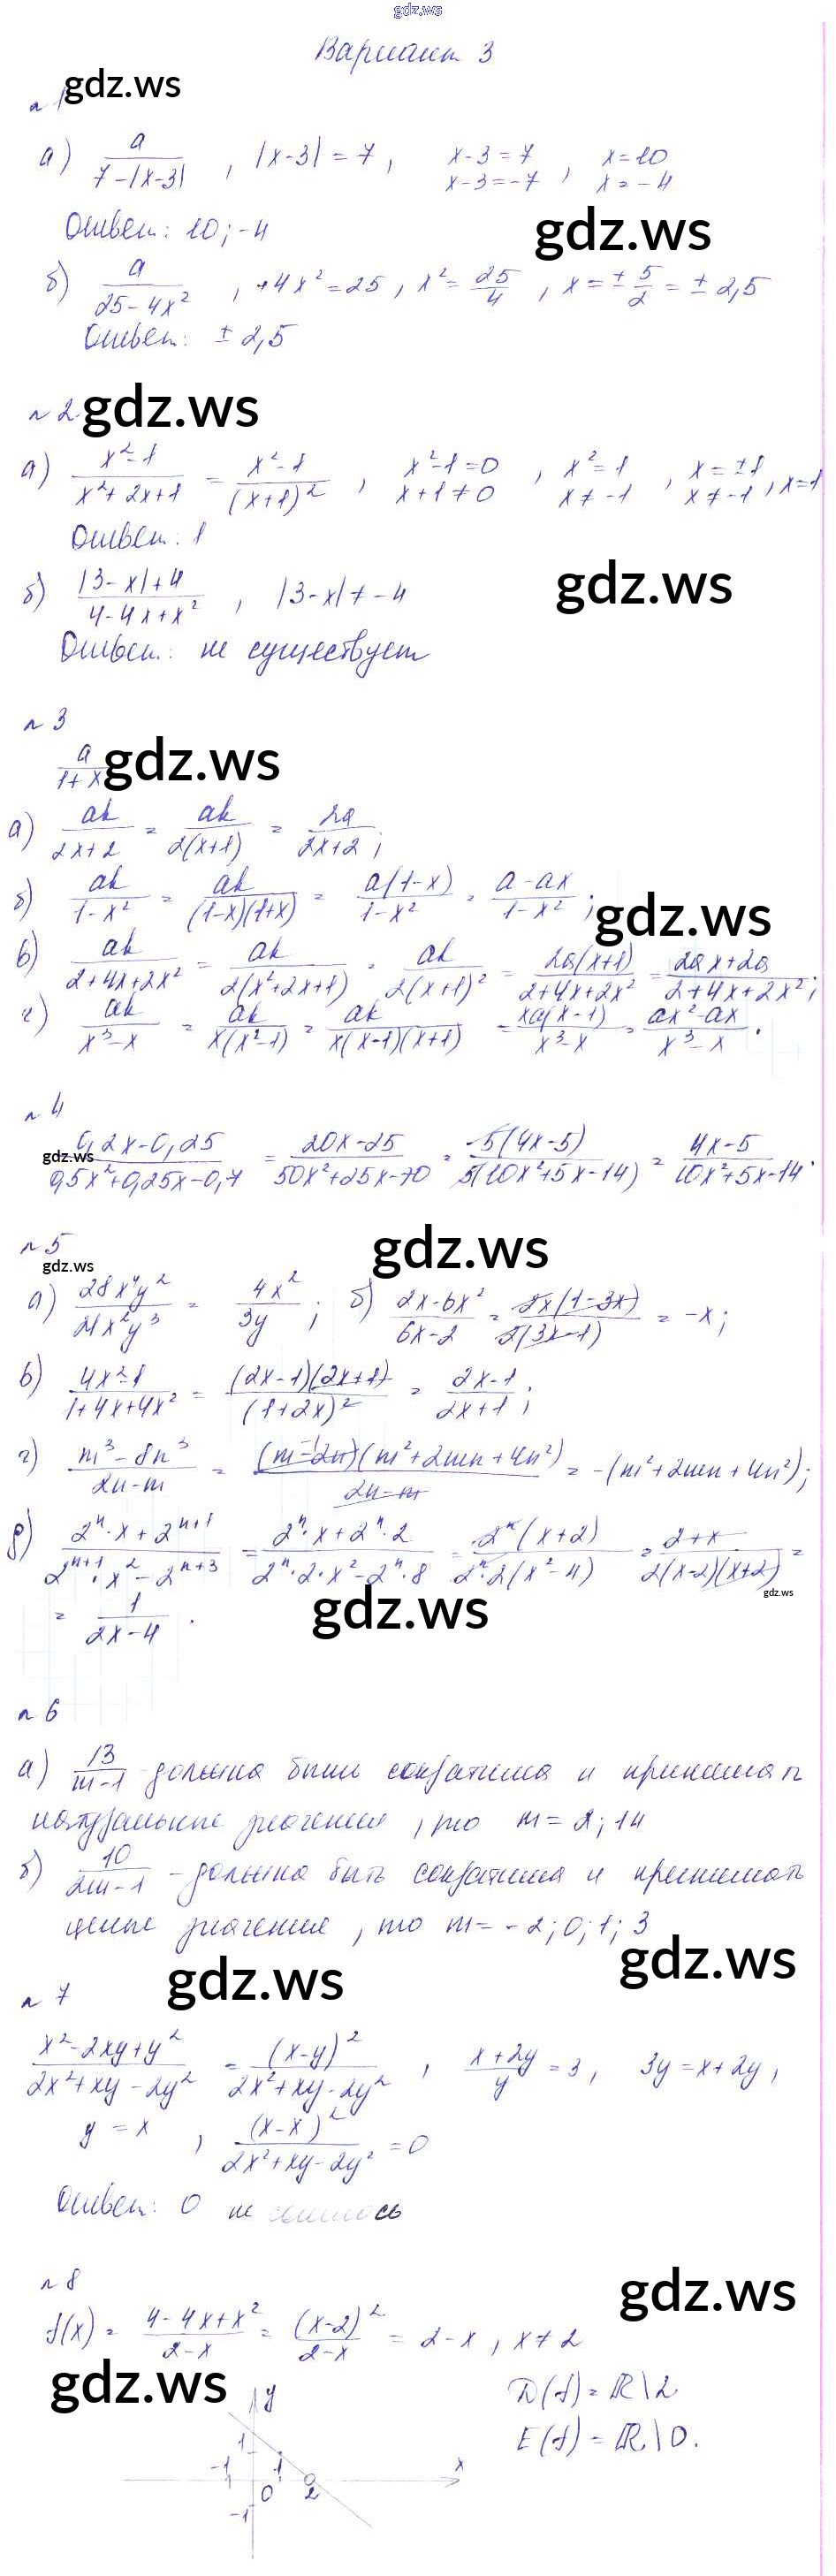 gdz.ws
Вариант 3
gdz.ws
n 1
а) a / (7-|x-3|) , |x-3| = 7 , x-3=7 x-3=-7 , x=10 x=-4
Ответ: 10; -4
gdz.ws
б) a / (25-4x²) , +4x²=25 , x²= 25/4 , x= ± 5/2 = ± 2,5
Ответ: ± 2,5
n 2. gdz.ws
а) (x²-1) / (x²+2x+1) = (x²-1) / (x+1)² , x²-1=0 x+1≠0 , x²=1 x≠-1 , x=±1 x≠-1 , x=1
Ответ: 1
б) (|3-x|+4) / (4-4x+x²) , |3-x|≠-4
gdz.ws
Ответ: не существует
n 3
a / (1+x) gdz.ws
а) ak / (2x+2) = ak / 2(x+1) = 2a / (2x+2) ;
б) ak / (1-x²) = ak / (1-x)(1+x) = a(1-x) / (1-x²) = (a-ax) / (1-x²) ;
gdz.ws
в) ak / (2+4x+2x²) = ak / 2(x²+2x+1) = ak / 2(x+1)² = 2a(x+1) / (2+4x+2x²) = (2ax+2a) / (2+4x+2x²) ;
г) ak / (x³-x) = ak / x(x²-1) = ak / x(x-1)(x+1) = xa(x-1) / (x³-x) = (ax²-ax) / (x³-x) .
n 4
gdz.ws
(0,2x-0,25) / (0,5x²+0,25x-0,7) = (20x-25) / (50x²+25x-70) = 5(4x-5) / 5(10x²+5x-14) = (4x-5) / (10x²+5x-14) .
n 5
gdz.ws
gdz.ws
а) 28x⁴y² / 21x²y³ = 4x² / 3y ; б) (2x-6x²) / (6x-2) = 2x(1-3x) / 2(3x-1) = -x ;
в) (4x²-1) / (1+4x+4x²) = (2x-1)(2x+1) / (1+2x)² = (2x-1) / (2x+1) ;
г) (m³-8n³) / (2n-m) = (m-2n)(m²+2mn+4n²) / (2n-m) = -(m²+2mn+4n²) ;
д) (2ⁿ·x+2ⁿ⁺¹) / (2ⁿ⁺¹·x²-2ⁿ⁺³) = (2ⁿ·x+2ⁿ·2) / (2ⁿ·2·x²-2ⁿ·8) = 2ⁿ(x+2) / 2ⁿ·2(x²-4) = (2+x) / 2(x-2)(x+2) =
gdz.ws
gdz.ws
= 1 / (2x-4) .
n 6
а) 13 / (m-1) - должна быть сократима и принимать
натуральные значения , то m= 2; 14
б) 10 / (2m-1) - должна быть сократима и принимать
целые значения , то m= -2; 0; 1; 3
gdz.ws
gdz.ws
n 7
(x²-2xy+y²) / (2x²+xy-2y²) = (x-y)² / (2x²+xy-2y²) , (x+2y) / y = 3 , 3y=x+2y ,
y = x , (x-x)² / (2x²+xy-2y²) = 0
Ответ: 0 не
n 8
gdz.ws
f(x) = (4-4x+x²) / (2-x) = (x-2)² / (2-x) = 2-x , x≠2
gdz.ws
D(f) = R\2
E(f) = R\0.
y
1
-1 1 x
0 2
-1